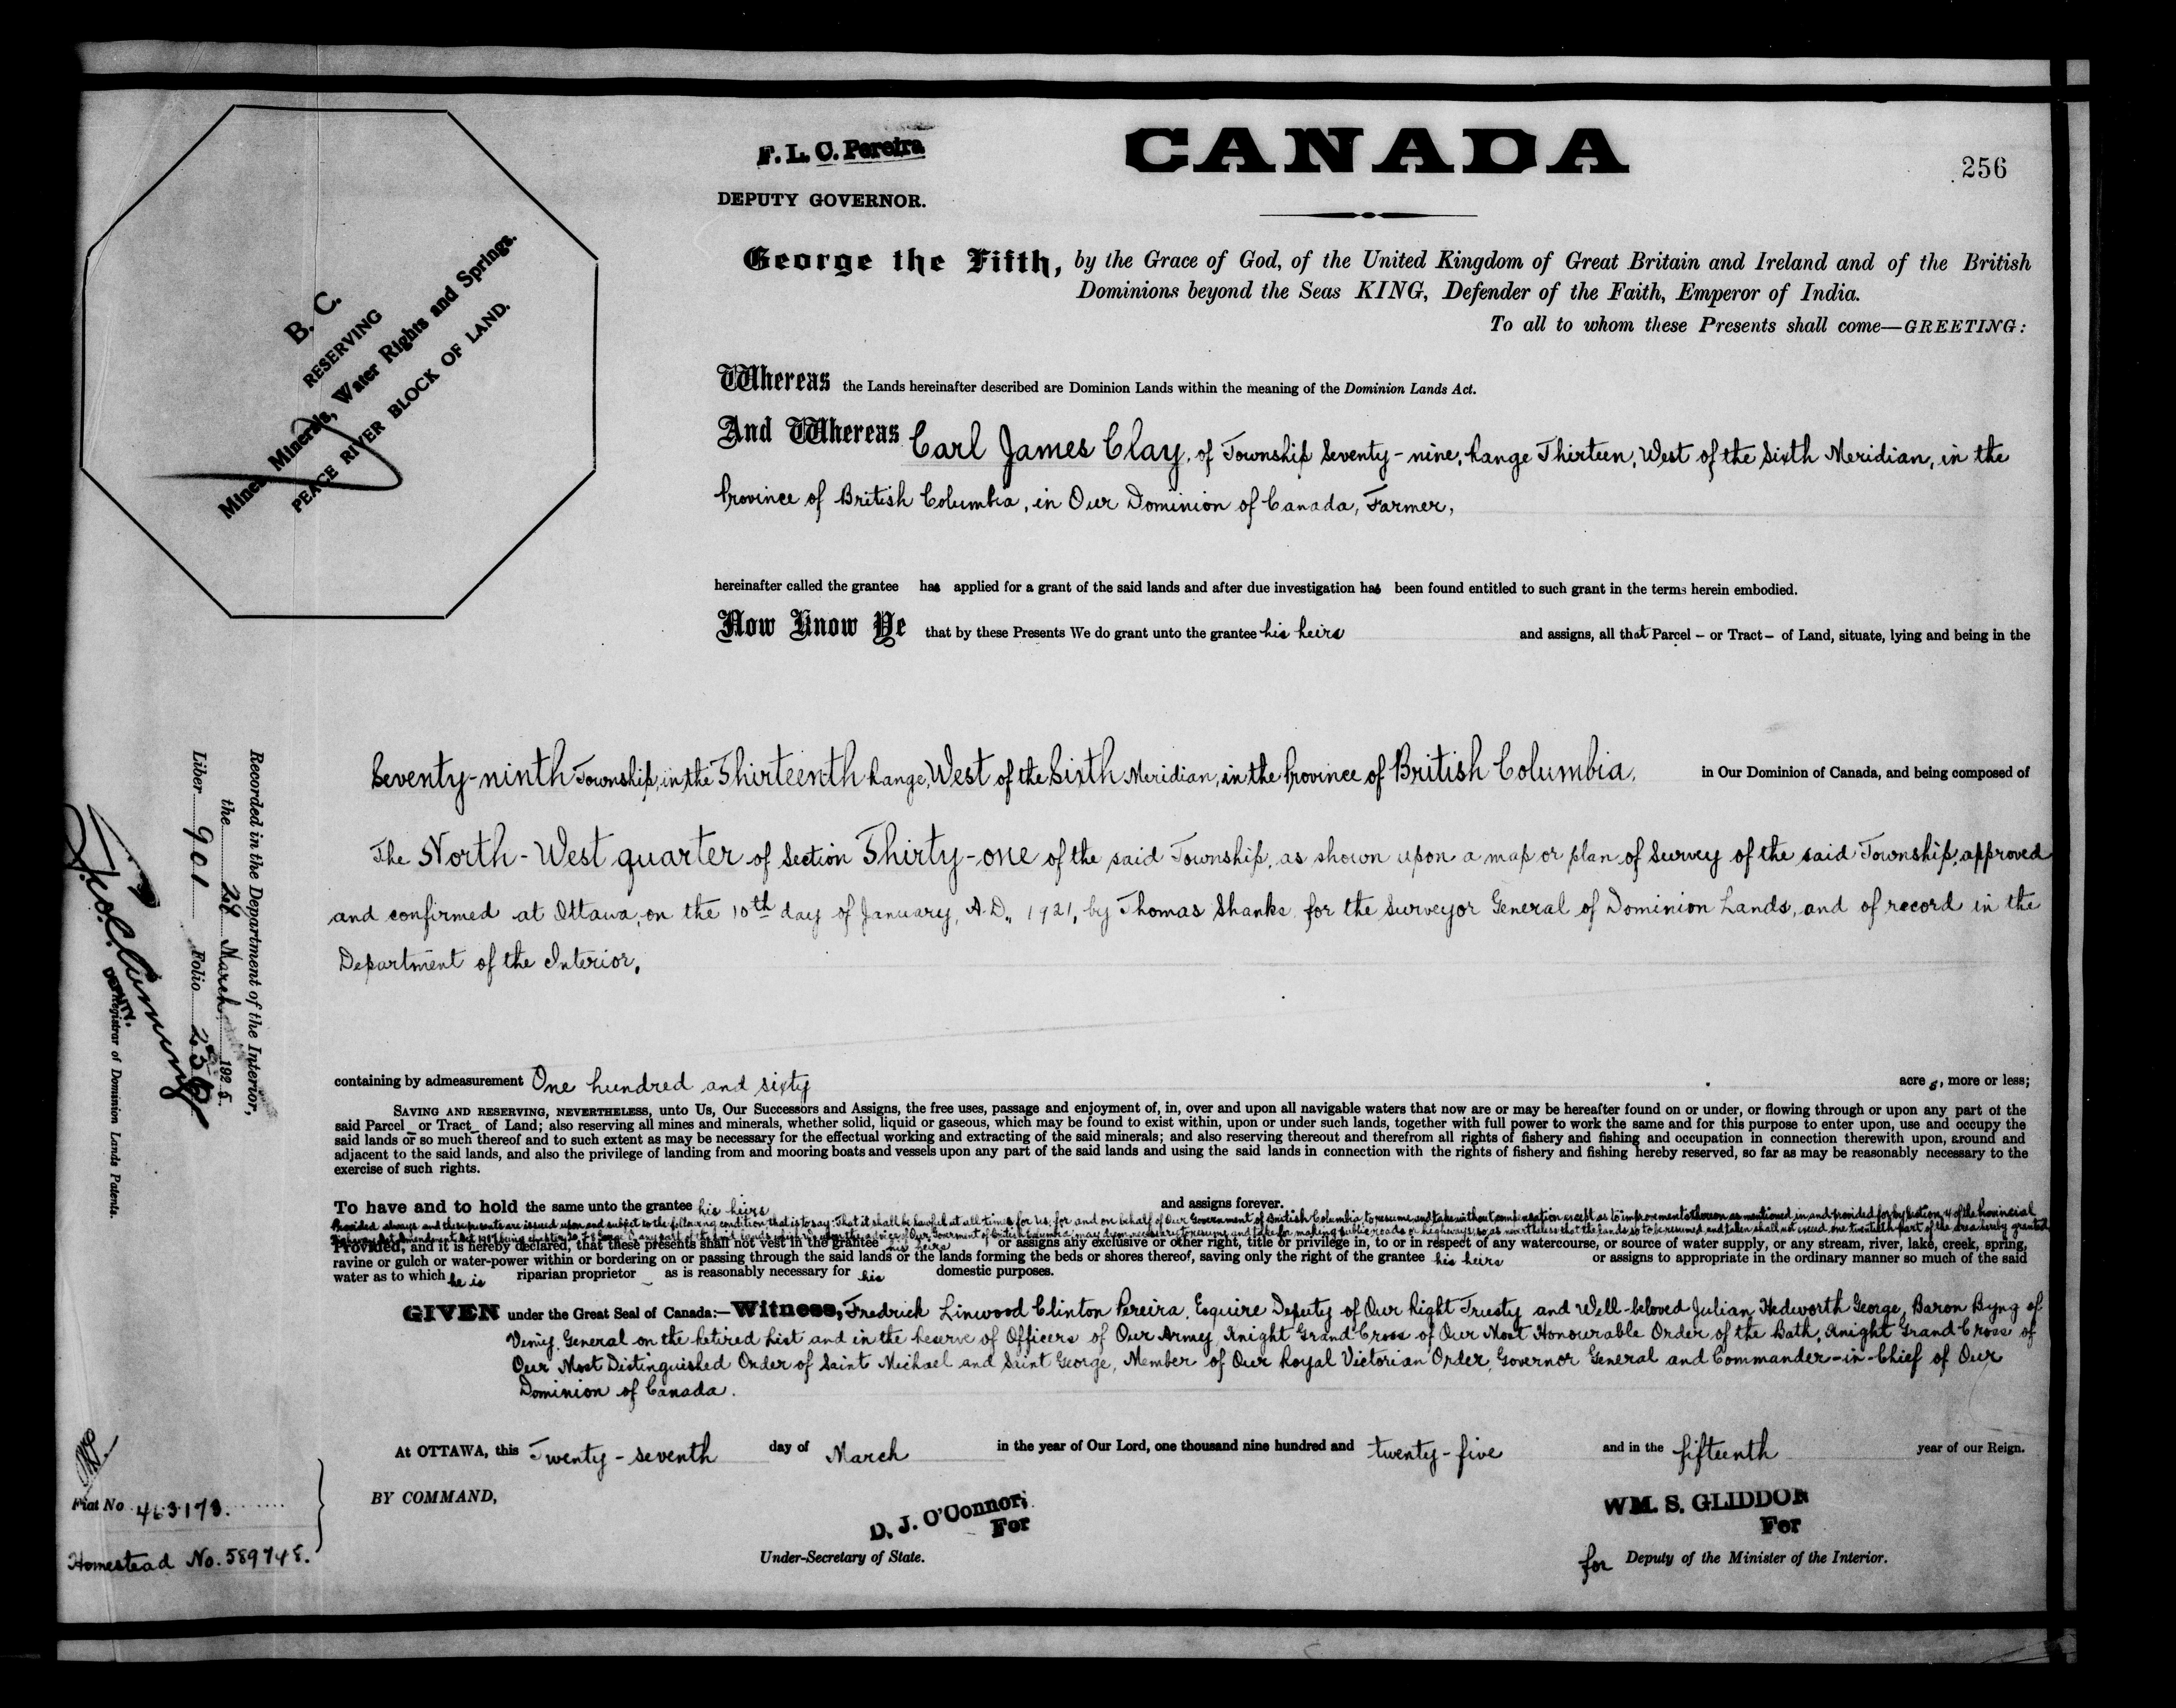 F. L. C. Pereira
DEPUTY GOVERNOR.
CANADA
256
B. C.
RESERVING
Mines, Minerals, Water Rights and Springs.
PEACE RIVER BLOCK OF LAND.
George the Fifth, by the Grace of God, of the United Kingdom of Great Britain and Ireland and of the British
Dominions beyond the Seas KING, Defender of the Faith, Emperor of India.
To all to whom these Presents shall come—GREETING:
Whereas the Lands hereinafter described are Dominion Lands within the meaning of the Dominion Lands Act.
And Whereas Carl James Clay, of Township Seventy-nine, Range Thirteen, West of the Sixth Meridian, in the
Province of British Columbia, in Our Dominion of Canada, Farmer,
hereinafter called the grantee has applied for a grant of the said lands and after due investigation has been found entitled to such grant in the terms herein embodied.
Now Know Ye that by these Presents We do grant unto the grantee his heirs and assigns, all that Parcel – or Tract – of Land, situate, lying and being in the
Seventy-ninth Township, in the Thirteenth Range, West of the Sixth Meridian, in the Province of British Columbia, in Our Dominion of Canada, and being composed of
The North-West quarter of Section Thirty-one of the said Township, as shown upon a map or plan of Survey of the said Township, approved
and confirmed at Ottawa, on the 10th day of January, A.D., 1921, by Thomas Shanks for the Surveyor General of Dominion Lands, and of record in the
Department of the Interior,
containing by admeasurement One hundred and sixty acres, more or less;
SAVING AND RESERVING, NEVERTHELESS, unto Us, Our Successors and Assigns, the free uses, passage and enjoyment of, in, over and upon all navigable waters that now are or may be hereafter found on or under, or flowing through or upon any part of the
said Parcel – or Tract – of Land; also reserving all mines and minerals, whether solid, liquid or gaseous, which may be found to exist within, upon or under such lands, together with full power to work the same and for this purpose to enter upon, use and occupy the
said lands or so much thereof and to such extent as may be necessary for the effectual working and extracting of the said minerals; and also reserving thereout and therefrom all rights of fishery and fishing and occupation in connection therewith upon, around and
adjacent to the said lands, and also the privilege of landing from and mooring boats and vessels upon any part of the said lands and using the said lands in connection with the rights of fishery and fishing hereby reserved, so far as may be reasonably necessary to the
exercise of such rights.
To have and to hold the same unto the grantee his heirs and assigns forever.
Provided always and these presents are issued upon and subject to the following condition, that is to say: That it shall be lawful at all times for us, for and on behalf of Our Government of British Columbia to resume and take without compensation except as to improvements thereon as mentioned in and provided for by Section 4 of the Provincial
so to be resumed and taken shall not exceed one twentieth part of the area hereby granted
Provided, and it is hereby declared, that these presents shall not vest in the grantee his heirs or assigns any exclusive or other right, title or privilege in, to or in respect of any watercourse, or source of water supply, or any stream, river, lake, creek, spring,
ravine or gulch or water-power within or bordering on or passing through the said lands or the lands forming the beds or shores thereof, saving only the right of the grantee his heirs or assigns to appropriate in the ordinary manner so much of the said
water as to which he is riparian proprietor – as is reasonably necessary for his domestic purposes.
GIVEN under the Great Seal of Canada:—Witness, Fredrick Linwood Clinton Pereira, Esquire Deputy of Our Right Trusty and Well-beloved Julian Hedworth George, Baron Byng of
Vimy, General on the Retired List and in the Reserve of Officers of Our Army, Knight Grand Cross of Our Most Honourable Order of the Bath, Knight Grand Cross of
Our Most Distinguished Order of Saint Michael and Saint George, Member of Our Royal Victorian Order, Governor General and Commander-in-Chief of Our
Dominion of Canada.
At OTTAWA, this Twenty-seventh day of March in the year of Our Lord, one thousand nine hundred and twenty-five and in the fifteenth year of our Reign.
BY COMMAND,
D. J. O'Connor,
For
Under-Secretary of State.
WM. S. GLIDDON
For
for Deputy of the Minister of the Interior.
Recorded in the Department of the Interior,
the 28 March 1925.
Liber 901 Folio 256
DEPUTY
Registrar of Dominion Lands Patents.
Fiat No 463178.
Homestead No. 589748.